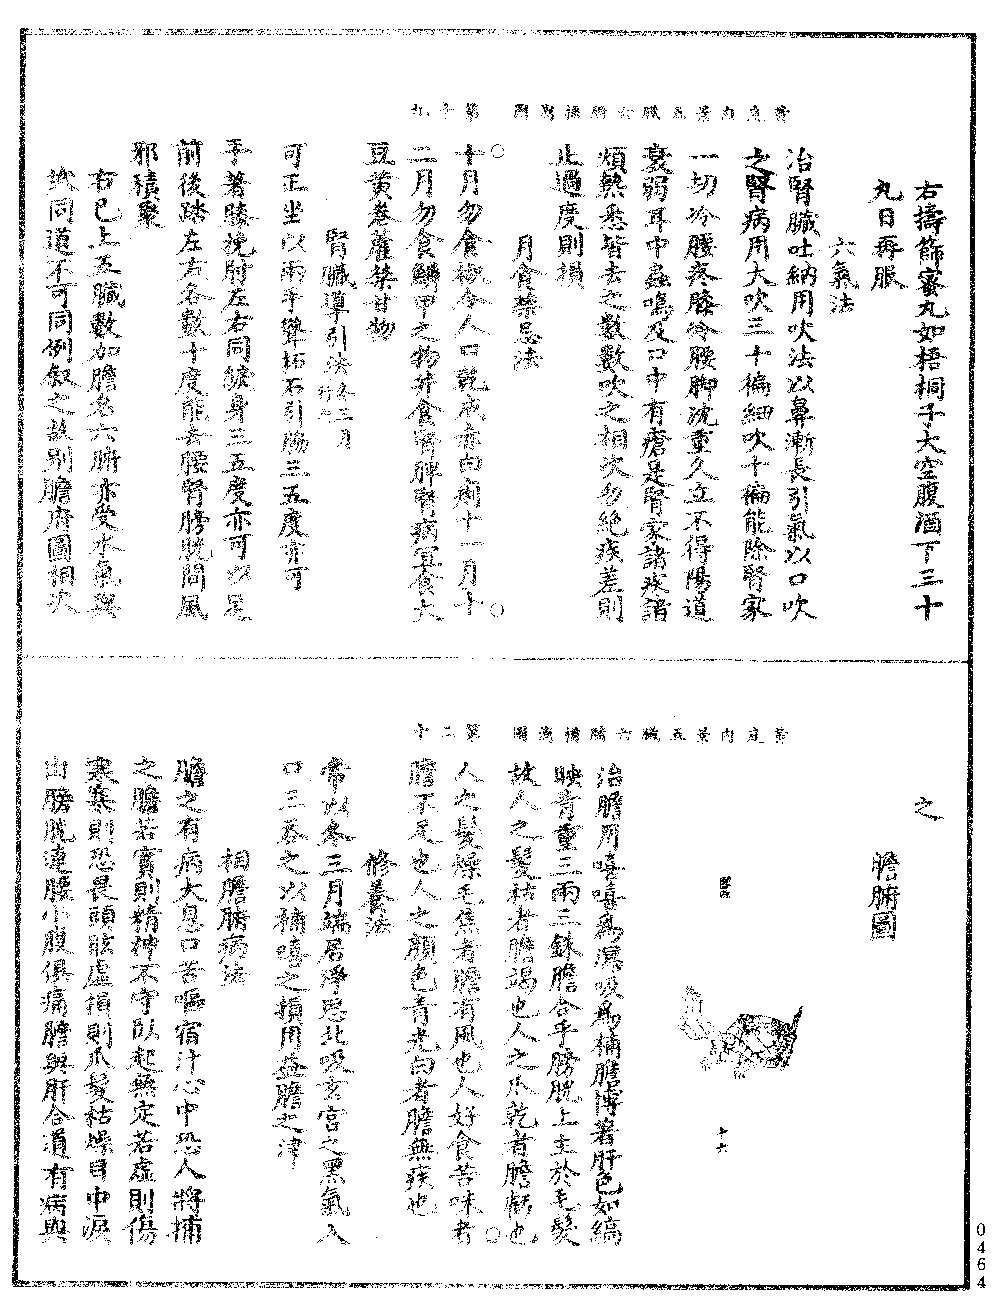 右擣篩蜜丸如梧桐子大空腹酒下三十
丸日再服
六氣法
治腎臟吐納用吹法以鼻漸長引氣以口吹
之腎病用大吹三十徧細吹十徧能除腎家
一切冷腰疼膝冷腰脚沈重久立不得陽道
衰弱耳中蟲鳴及口中有瘡是腎家諸疾諸
煩熱悉皆去之數數吹之相次勿絕疾差則
止過度則損
月食禁忌法
十月勿食椒令人口乾成赤白痢十一月十
二月勿食鱗甲之物并食腎脾腎病宜食大
豆黃卷藿禁甘物
腎臟導引法冬三月行之
可正坐以兩手聳托石引脇三五度亦可
手著膝挽肘左右同捩身三五度亦可以足
前後踏左右各數十度能去腰腎膀胱間風
邪積聚
右已上五臟數加膽名六腑亦受水氣與
坎同道不可同例叙之故別膽府圖相次
黃庭内景五臟六腑補瀉圖 第十九
之
膽腑圖
膽
十六
治膽用嘻嘻爲瀉吸爲補膽博著肝色如縞
映青重三兩三銖膽合乎膀胱上主於毛髮
故人之髮枯者膽竭也人之爪乾者膽虧也
人之髮燥毛焦者膽有風也人好食苦味者
膽不足也人之顏色青光白者膽無疾也
修養法
常以冬三月端居淨思北吸玄宮之黑氣入
口三吞之以補嘻之損用益膽之津
相膽腑病法
膽之有病大息口苦嘔宿汁心中恐人將捕
之膽若實則精神不守臥起無定若虛則傷
寒寒則恐畏頭眩虛損則爪髮枯燥目中淚
出膀胱連腰小腹俱痛膽與肝合道有病與
黃庭内景五臟六腑補瀉圖 第二十
0464